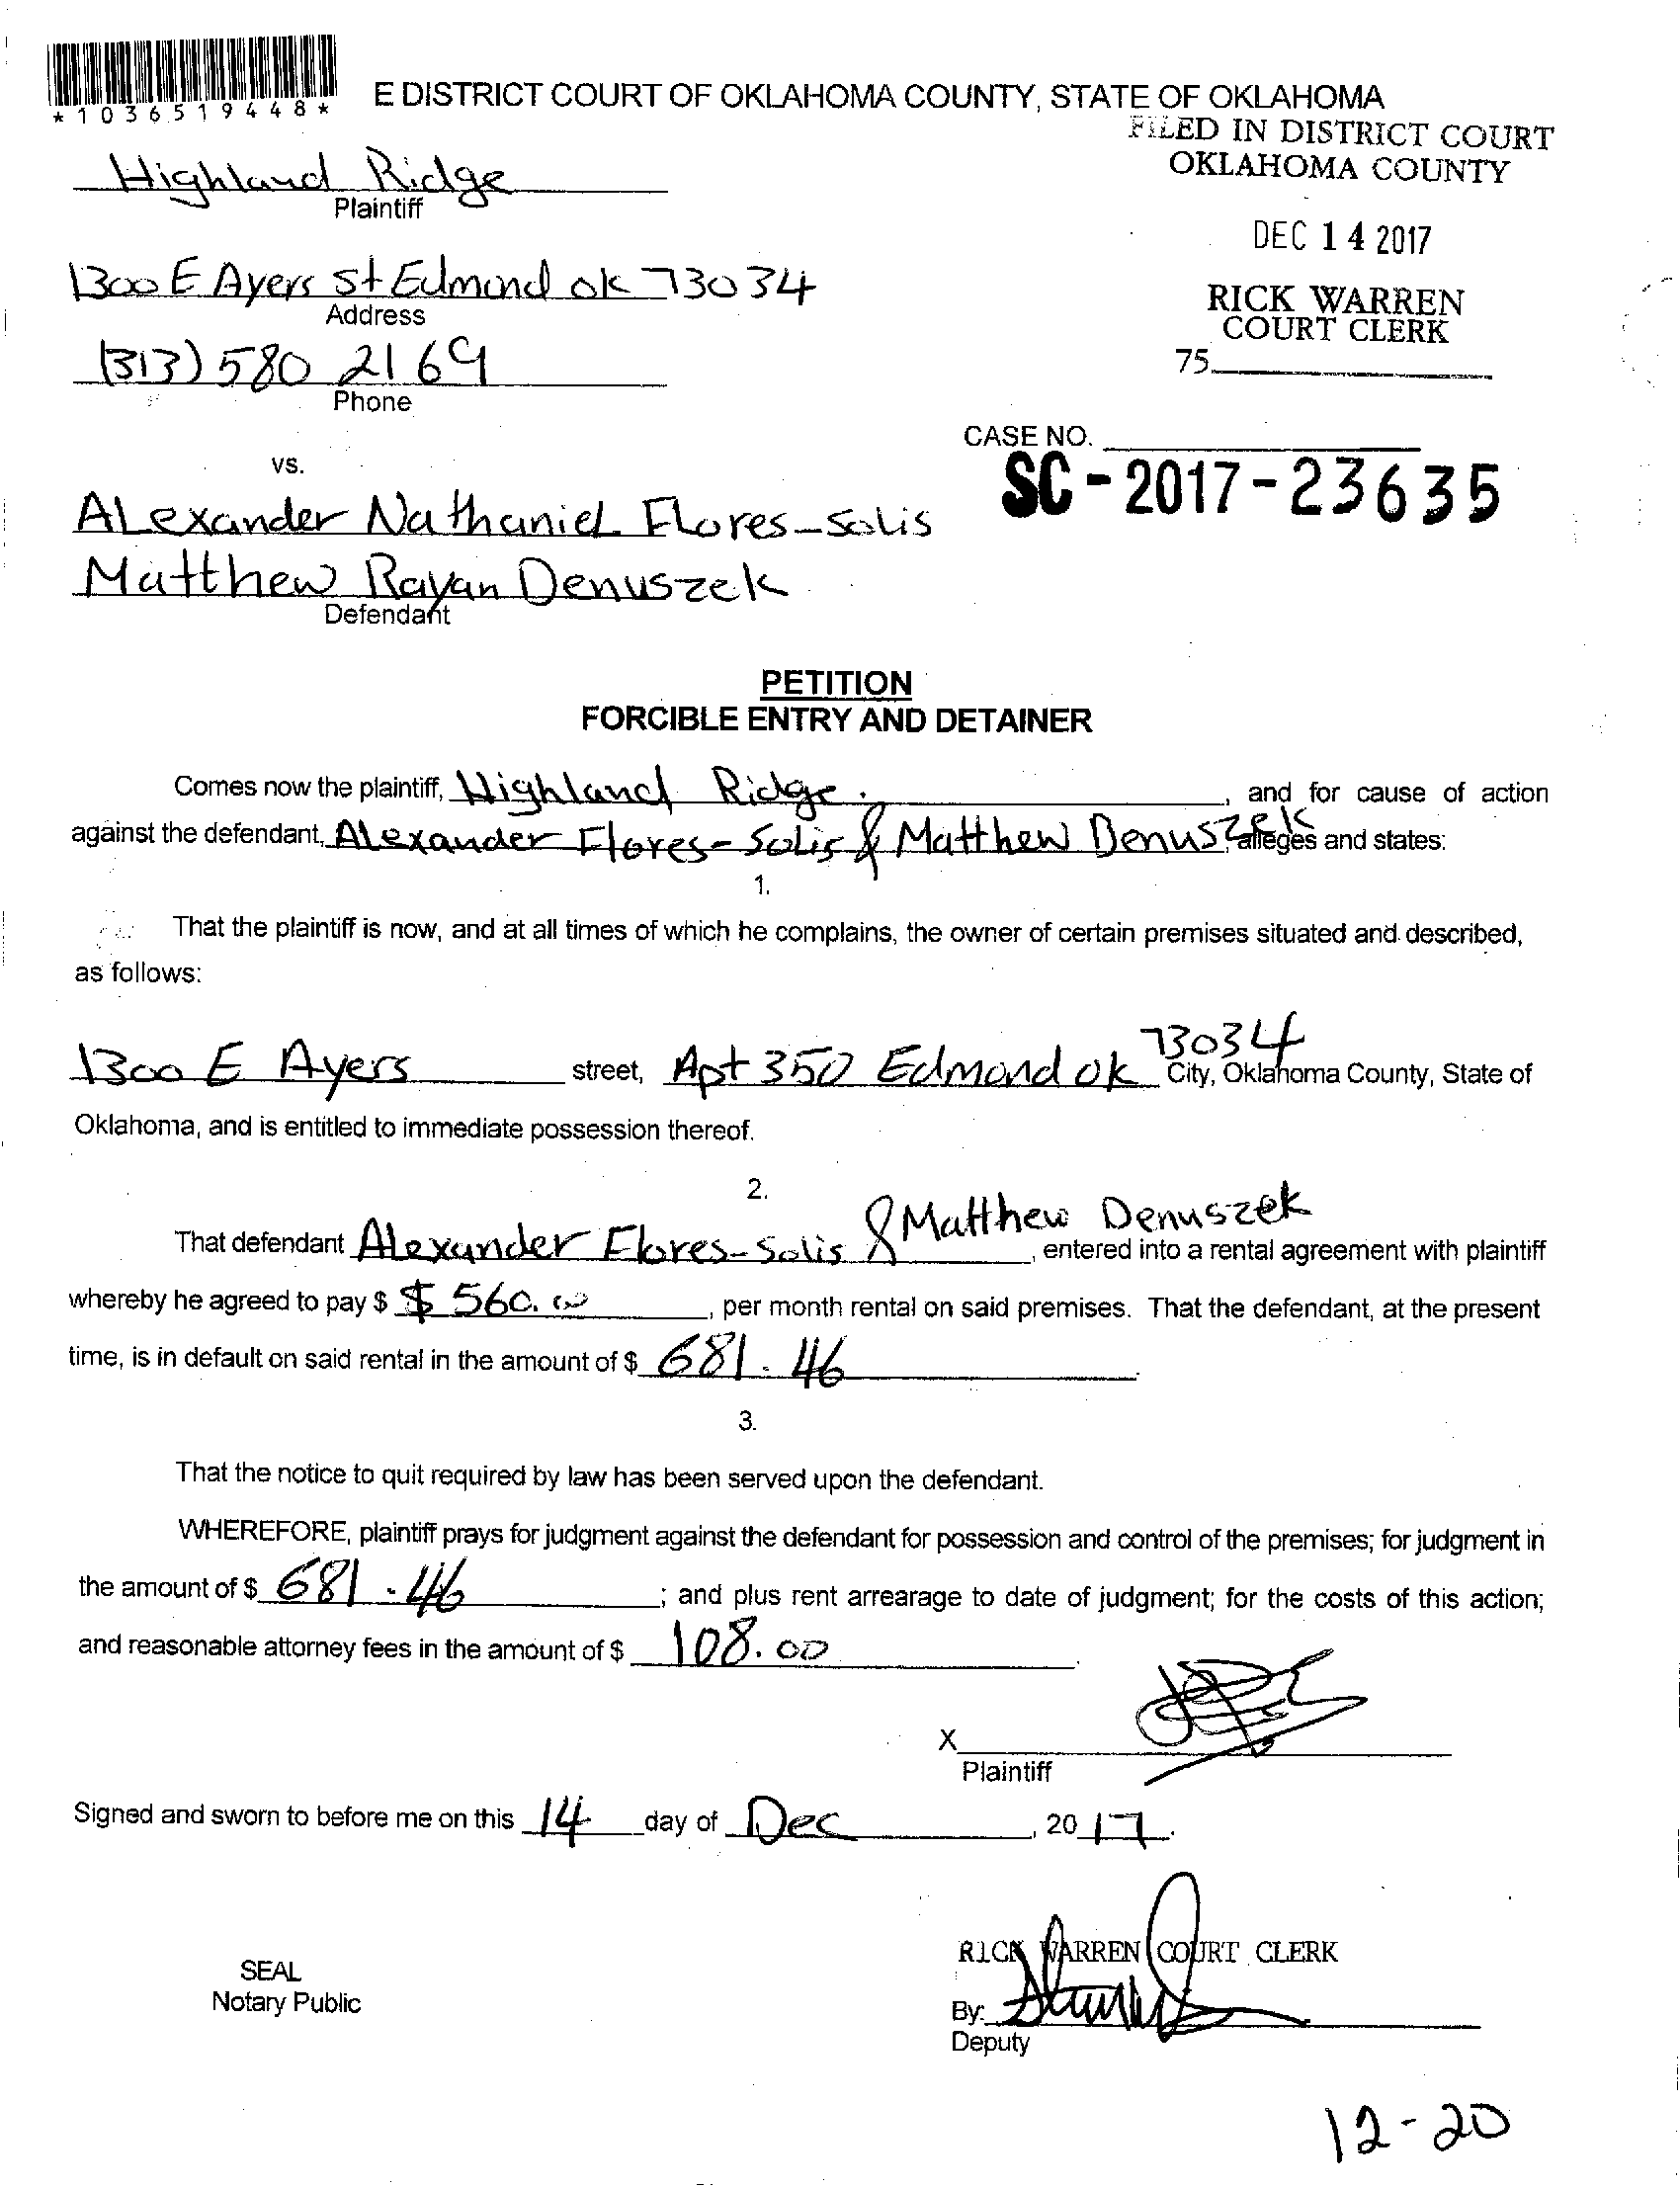 *1036519448*
E DISTRICT COURT OF OKLAHOMA COUNTY, STATE OF OKLAHOMA
FILED IN DISTRICT COURT
OKLAHOMA COUNTY
Highland Ridge
Plaintiff
DEC 14 2017
1300 E Ayers St Edmond ok 73034
Address
RICK WARREN
COURT CLERK
(313) 580 2169
Phone
75
CASE NO.
SC-2017-23635
vs.
ALexander Nathaniel Flores-Solis
Matthew Rayan Denuszek
Defendant
PETITION
FORCIBLE ENTRY AND DETAINER
Comes now the plaintiff, Highland Ridge, and for cause of action
against the defendant, Alexander Flores-Solis & Matthew Denuszek alleges and states:
1.
That the plaintiff is now, and at all times of which he complains, the owner of certain premises situated and described,
as follows:
1300 E Ayers street, Apt 350 Edmond ok 73034 City, Oklahoma County, State of
Oklahoma, and is entitled to immediate possession thereof.
2.
That defendant Alexander Flores-Solis & Matthew Denuszek, entered into a rental agreement with plaintiff
whereby he agreed to pay $ $ 560.00, per month rental on said premises. That the defendant, at the present
time, is in default on said rental in the amount of $ 681.46
3.
That the notice to quit required by law has been served upon the defendant.
WHEREFORE, plaintiff prays for judgment against the defendant for possession and control of the premises; for judgment in
the amount of $ 681.46; and plus rent arrearage to date of judgment; for the costs of this action;
and reasonable attorney fees in the amount of $ 108.00
X
Plaintiff
Signed and sworn to before me on this 14 day of Dec, 2017.
RICK WARREN COURT CLERK
SEAL
Notary Public
By:
Deputy
12-20